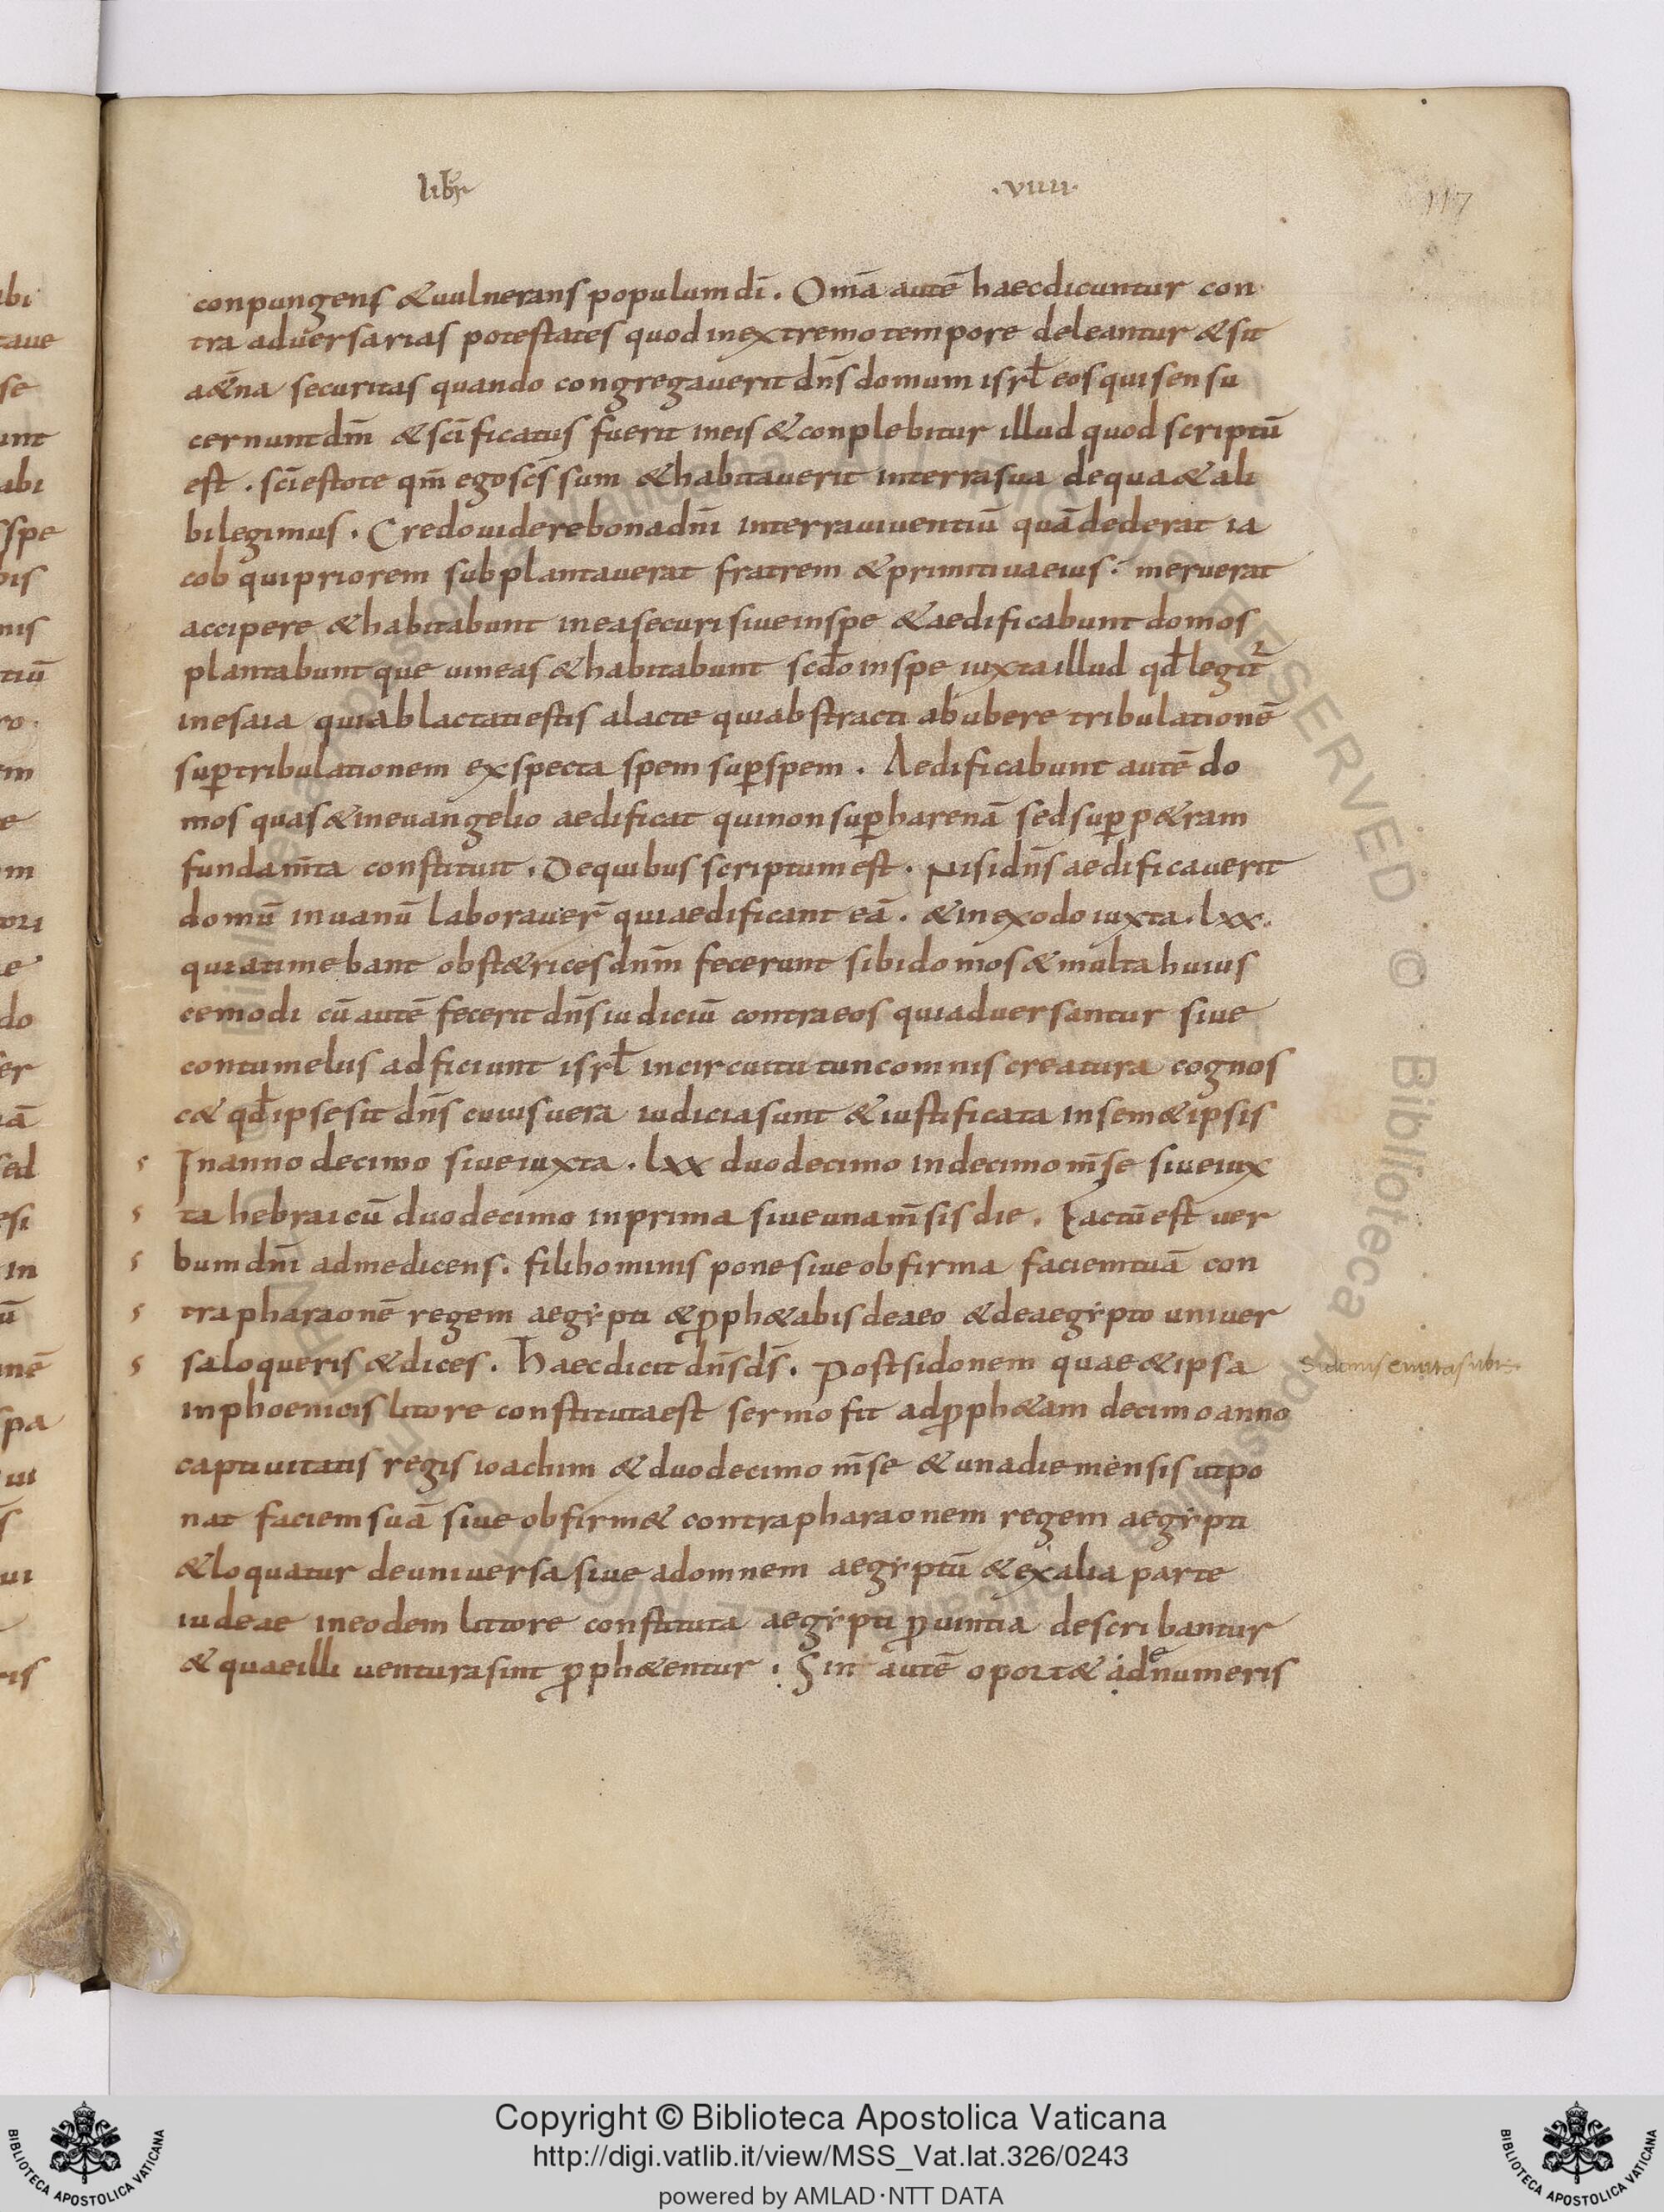 libr ·VIIII· 117
conpungens &uulnerans populum dī. Omā autē haec dicuntur con
tra aduersarias potestates quod in extremo tempore deleantur & sit
a&na securitas quando congregauerit dns̄ domum isrl̄ eos qui sensu
cernunt dm̄ & scīficatus fuerit in eis & conplebitur illud quod scriptū
est. scī estote qm̄ ego scs̄ sum & habitauerit in terra sua de qua & ali
bi legimus. Credo uidere bona dnī in terra uiuentiū quā dederat ia
cob qui priorem subplantauerat fratrem & primitiua eius: meruerat
accipere & habitabunt in ea securi siue in spe & aedificabunt domos
plantabuntque uineas & habitabunt scd̄o in spe iuxta illud qd̄ legit᷑
in esaia qui ablactati estis a lacte qui abstracti ab ubere tribulationē
suꝑ tribulationem exspecta spem suꝑ spem. Aedificabunt autē do
mos quas & in euangelio aedificat qui non suꝑ harenā sed suꝑ p&ram
fundam̄ta constituit. De quibus scriptum est. Nisi dns̄ aedificauerit
domū in uanū laborauer̄ qui aedificant eā. & in exodo iuxta ·lxx·
quia timebant obst&rices dnm̄ fecerunt sibi domos & multa huius
cemodi cū autē fecerit dns̄ iudiciū contra eos qui aduersantur siue
contumeliis adficiunt isrl̄ in circuitu tunc omnis creatura cognos
c& qd̄ ipse sit dns̄ cuius uera iudicia sunt & iustificata in sem&ipsis
In anno decimo siue iuxta ·lxx duodecimo in decimo m̄se siue iux
ta hebraicū duodecimo in prima siue una m̄sis die. Factū est uer
bum dnī ad me dicens. fili hominis pone siue obfirma faciem tuā con
tra pharaonē regem aegẏpti & ꝓph&abis de aeo & de aegẏpto uniuer
sa loqueris & dices. Haec dicit dns̄ ds̄. Post sidonem quae & ipsa
Sidonis ciuitas ubi
in phoenicis litore constituta est sermo fit ad ꝓph&am decimo anno
captiuitatis regis ioachim & duodecimo m̄se & una die mensis ut po
nat faciem suā siue obfirm& contra pharaonem regem aegẏpti
& loquatur de uniuersa siue ad omnem aegẏptū & ex alia parte
iudeae in eodem littore constituta aegẏpti ꝓuintia describantur
& quae illi uentura sint ꝓph&entur. Sin autē oport& ad enumeris
Copyright © Biblioteca Apostolica Vaticana
http://digi.vatlib.it/view/MSS_Vat.lat.326/0243
powered by AMLAD·NTT DATA
BIBLIOTECA APOSTOLICA VATICANA
BIBLIOTECA APOSTOLICA VATICANA